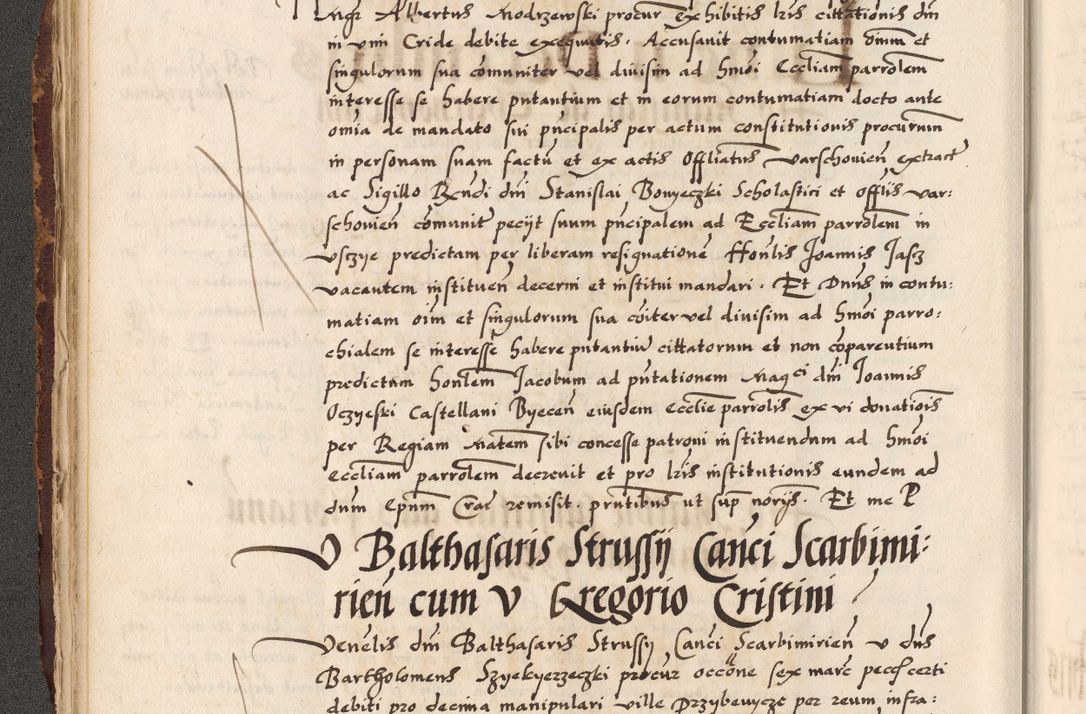 Mgr Albertus Modrzewski procur exhibitis lris cittationis dni
in vim Cride debite exequutis. Accusavit contumatiam omnium et
singulorum sua comuniter vel divisim ad hmoi Eccliam parrolem
interesse se habere putantium et in eorum contumatiam docto ante
omia de mandato sui pncipalis per actum constitutionis procurum
in personam suam factu et ex actis Offliatus varschovien extract
ac Sigillo Rendi dni Stanislai Bonyeczki Scholastici et offlis var:
schovien comunit peciit suum pncipalem ad Eccliam parrolem in
vsczye predictam per liberam resignatione Honlis Joannis Jasz
vacantem instituen decerni et institui mandari. Et Dnus in contu:
matiam oim et singulorum sua coiter vel divisim ad hmoi parro:
chialem se interesse habere putantiu cittatorum et non coparentium
predictum honlem Jacobum ad pntationem Magci dni Joannis
Oczyeski Castellani Byecen eiusdem Ecclie parrolis ex vi donatiois
per Regiam Matem sibi concesse patroni instituendum ad hmoi
eccliam parrolem decrevit et pro lris institutionis eundem ad
dum Epum Crac remisit. pntibus ut sup noriis. Et me P
V Balthasaris Strussij Canci Scarbimi:
rien cum V Gregorio Cristini
Venelis dni Balthasaris Strussij Canci Scarbimirien v dns
Bartholomeus Szyekyerzeczki procur occone sex marc pecc certi
debiti pro decima manipulari ville Przybenycze per reum infra: